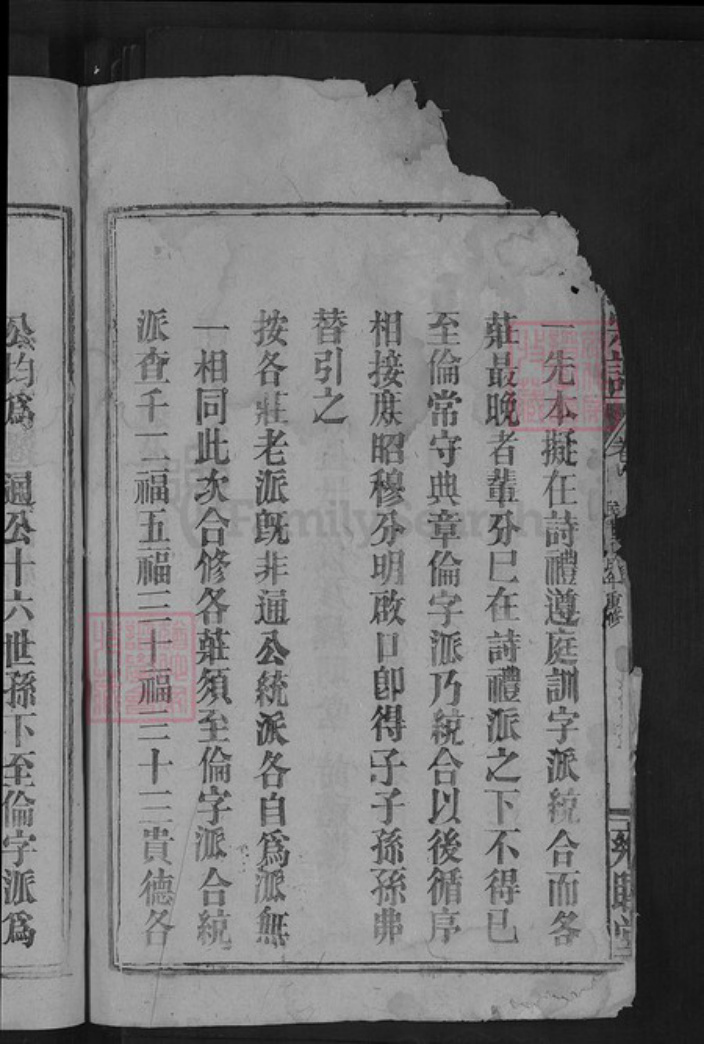 一先本擬在詩禮遵庭訓字派統合而各
莊最晚者輩分已在詩禮派之下不得已
至倫常守典章倫字派乃統合以後循序
相接庶昭穆分明啟口卽得子子孫孫弗
替引之
按各莊老派旣非通公統派各自爲派無
一相同此次合修各莊須至倫字派合統
派查千一福五福三十福三十三貴德各
公均爲 通公十六世孫下至倫字派爲
FamilySearch